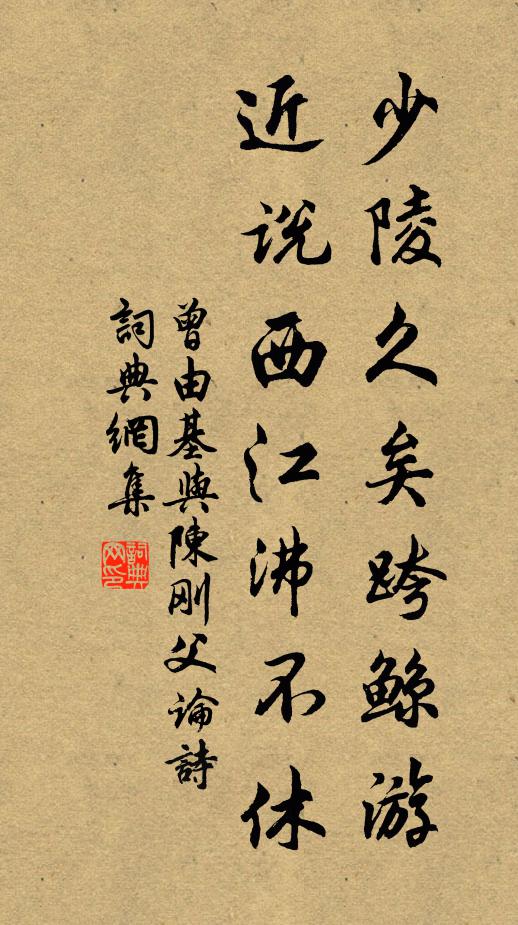 少陵久矣跨鲸游
近说西江沸不休
曾由基與陳刚父論詩
詞典網集
詞典网印